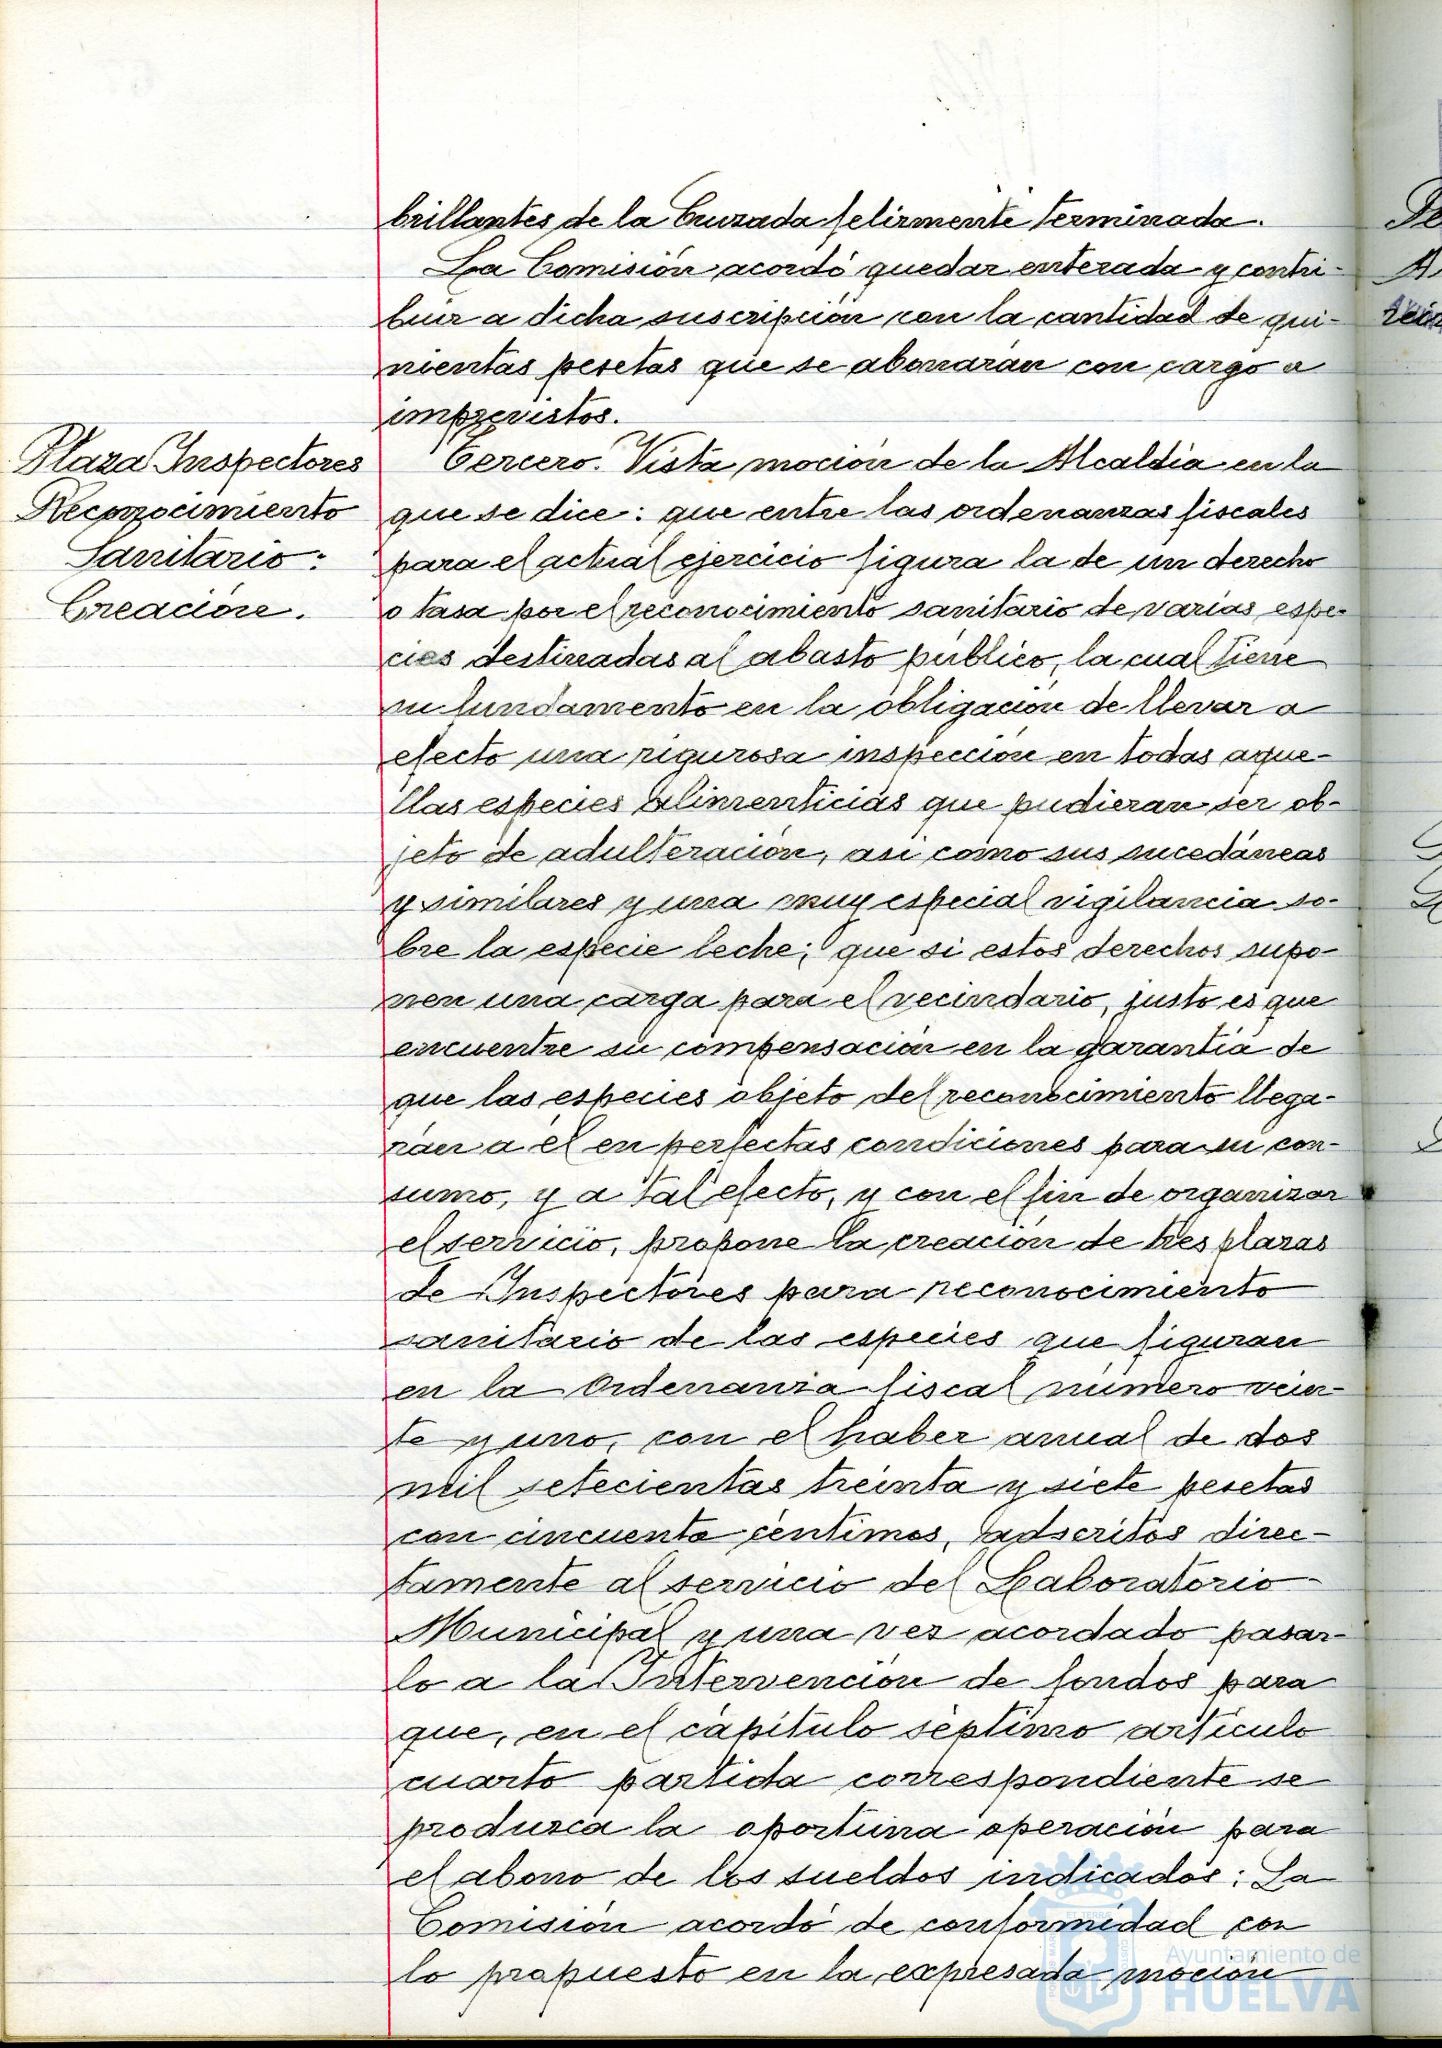 brillantes de la Cruzada felizmente terminada.
La Comisión acordó quedar enterada y contri-
buir a dicha suscripción con la cantidad de qui-
nientas pesetas que se abonarán con cargo a
imprevistos.
Plaza Inspectores
Reconocimiento
Sanitario:
Creación.
Tercero. Vista moción de la Alcaldía en la
que se dice: que entre las ordenanzas fiscales
para el actual ejercicio figura la de un derecho
o tasa por el reconocimiento sanitario de varias espe-
cies destinadas al abasto público, la cual tiene
su fundamento en la obligación de llevar a
efecto una rigurosa inspección en todas aque-
llas especies alimenticias que pudieran ser ob-
jeto de adulteración, asi como sus sucedáneas
y similares y una muy especial vigilancia so-
bre la especie leche; que si estos derechos supo-
nen una carga para el vecindario, justo es que
encuentre su compensación en la garantía de
que las especies objeto del reconocimiento llega-
rán a él en perfectas condiciones para su con-
sumo, y a tal efecto, y con el fin de organizar
el servicio, propone la creación de tres plazas
de Inspectores para reconocimiento
sanitario de las especies que figuran
en la Ordenanza fiscal número vein-
te y uno, con el haber anual de dos
mil setecientas treinta y siete pesetas
con cincuenta céntimos, adscritos direc-
tamente al servicio del Laboratorio
Municipal y una vez acordado pasar-
lo a la Intervención de fondos para
que, en el capítulo séptimo artículo
cuarto partida correspondiente se
produzca la oportuna operación para
el abono de los sueldos indicados; La
Comisión acordó de conformidad con
lo propuesto en la expresada moción
Ayuntamiento de
HUELVA